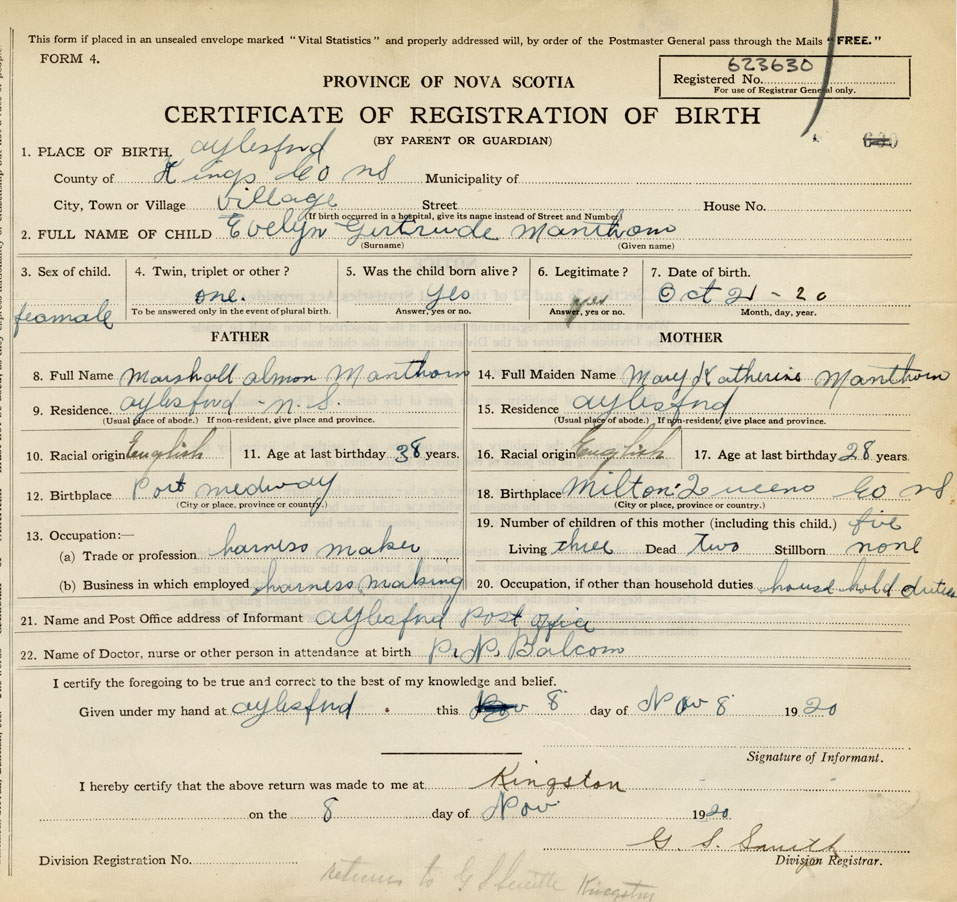 This form if placed in an unsealed envelope marked "Vital Statistics" and properly addressed will, by order of the Postmaster General pass through the Mails "FREE."
FORM 4.
623630
Registered No.
For use of Registrar General only.
PROVINCE OF NOVA SCOTIA
CERTIFICATE OF REGISTRATION OF BIRTH
(BY PARENT OR GUARDIAN)
1. PLACE OF BIRTH. Aylesford
County of Kings Co NS Municipality of
City, Town or Village Village Street House No.
(If birth occurred in a hospital, give its name instead of Street and Number)
2. FULL NAME OF CHILD Evelyn Gertrude Manthorn
(Surname) (Given name)
3. Sex of child. 4. Twin, triplet or other? 5. Was the child born alive? 6. Legitimate? 7. Date of birth.
feamale one. Yes yes Oct 21 - 20
To be answered only in the event of plural birth. Answer, yes or no. Answer, yes or no. Month, day, year.
FATHER MOTHER
8. Full Name Marshall Almon Manthorn 14. Full Maiden Name Mary Katherine Manthorn
9. Residence. Aylesford - N.S. 15. Residence Aylesford
(Usual place of abode.) If non-resident, give place and province. (Usual place of abode.) If non-resident, give place and province.
10. Racial origin English 11. Age at last birthday 38 years. 16. Racial origin English 17. Age at last birthday 28 years.
12. Birthplace Port medway 18. Birthplace Milton Queens Co NS
(City or place, province or country.) (City or place, province or country.)
19. Number of children of this mother (including this child.) five
13. Occupation:—
(a) Trade or profession harness maker Living three Dead two Stillborn none
(b) Business in which employed harness making 20. Occupation, if other than household duties house hold duties
21. Name and Post Office address of Informant Aylesford Post office
22. Name of Doctor, nurse or other person in attendance at birth P. N. Balcom
I certify the foregoing to be true and correct to the best of my knowledge and belief.
Given under my hand at Aylesford this 8 day of Nov 8 1920
Signature of Informant.
I hereby certify that the above return was made to me at Kingston
on the 8 day of Nov 1920
G. S. Smith
Division Registration No. Division Registrar.
returns to G S Smith Kingston